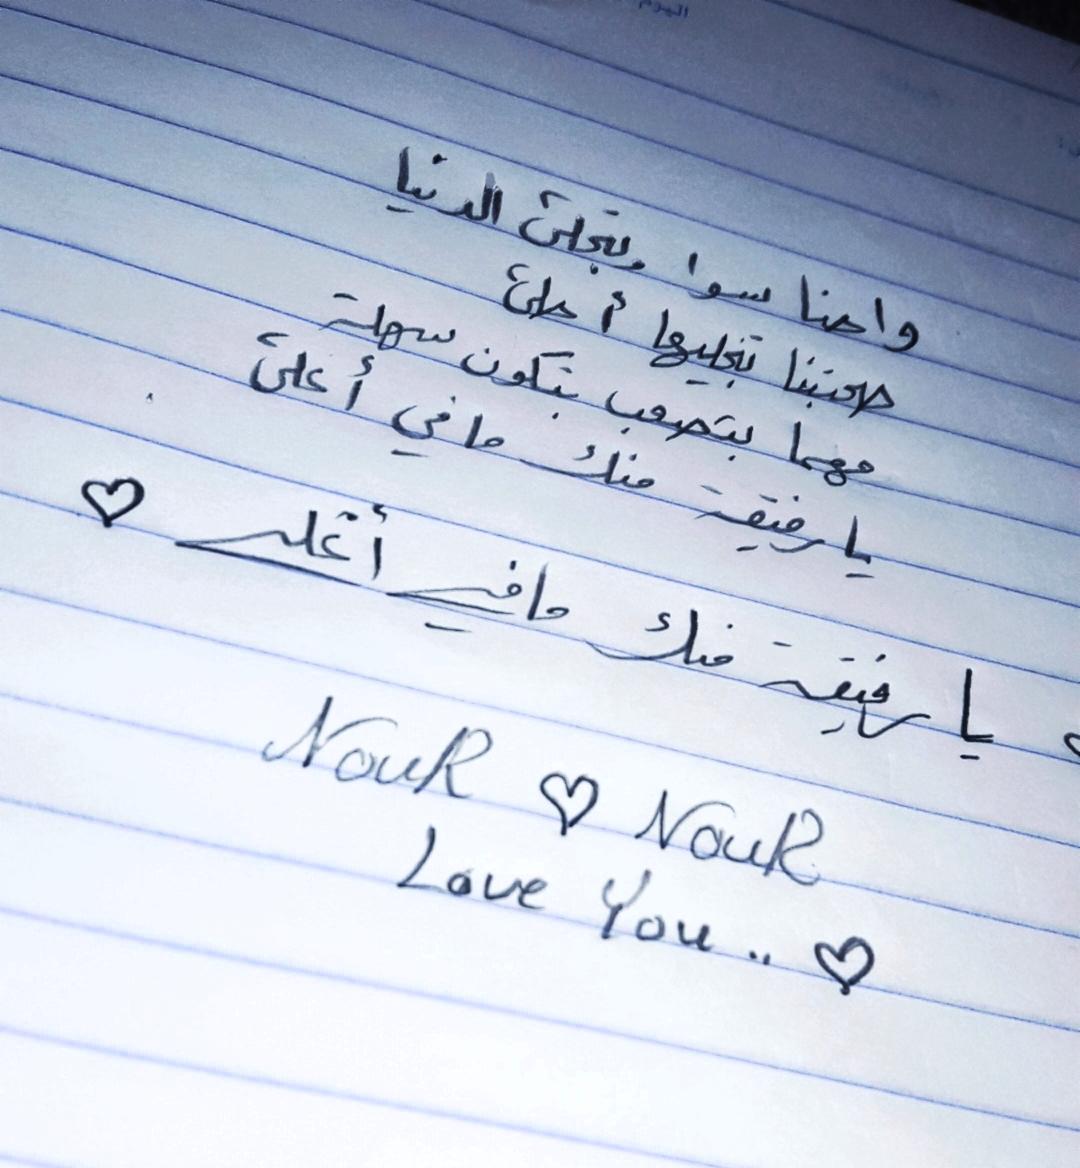 اليوم
واحنا سوا وبتحلى الدنيا
صحبتنا بتخليها أحلى
مهما بتصعب بتكون سهلة
يا رفيقة منك ما في أعلى
يا رفيقة منك ما في أغلى ♡
NouR ♡ NouR
Love You .. ♡